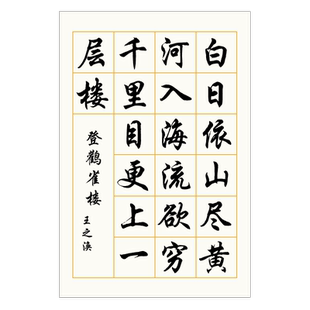 白日依山尽黄
河入海流欲穷
千里目更上一
层楼
登鹳雀楼
王之涣